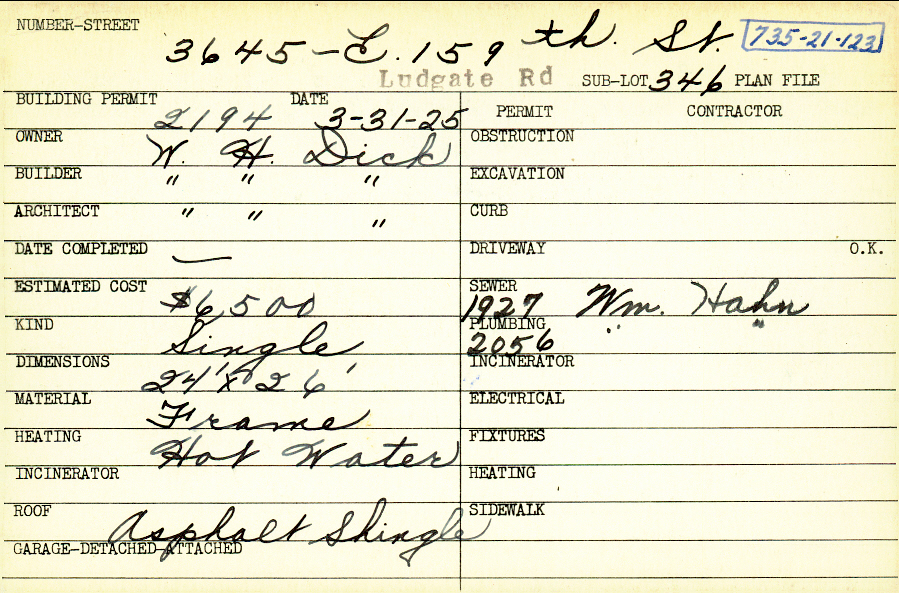 NUMBER-STREET 3645-E. 159 th. St. 735-21-123
Ludgate Rd SUB-LOT 346 PLAN FILE
BUILDING PERMIT 2194 DATE 3-31-25 PERMIT CONTRACTOR
OWNER W. H. Dick OBSTRUCTION
BUILDER " " " EXCAVATION
ARCHITECT " " " CURB
DATE COMPLETED — DRIVEWAY O.K.
ESTIMATED COST $6,500 SEWER 1927 Wm. Hahn
KIND Single PLUMBING 2056 " "
DIMENSIONS 24' x 26' INCINERATOR
MATERIAL Frame ELECTRICAL
HEATING Hot Water FIXTURES
INCINERATOR HEATING
ROOF Asphalt Shingle SIDEWALK
GARAGE-DETACHED-ATTACHED